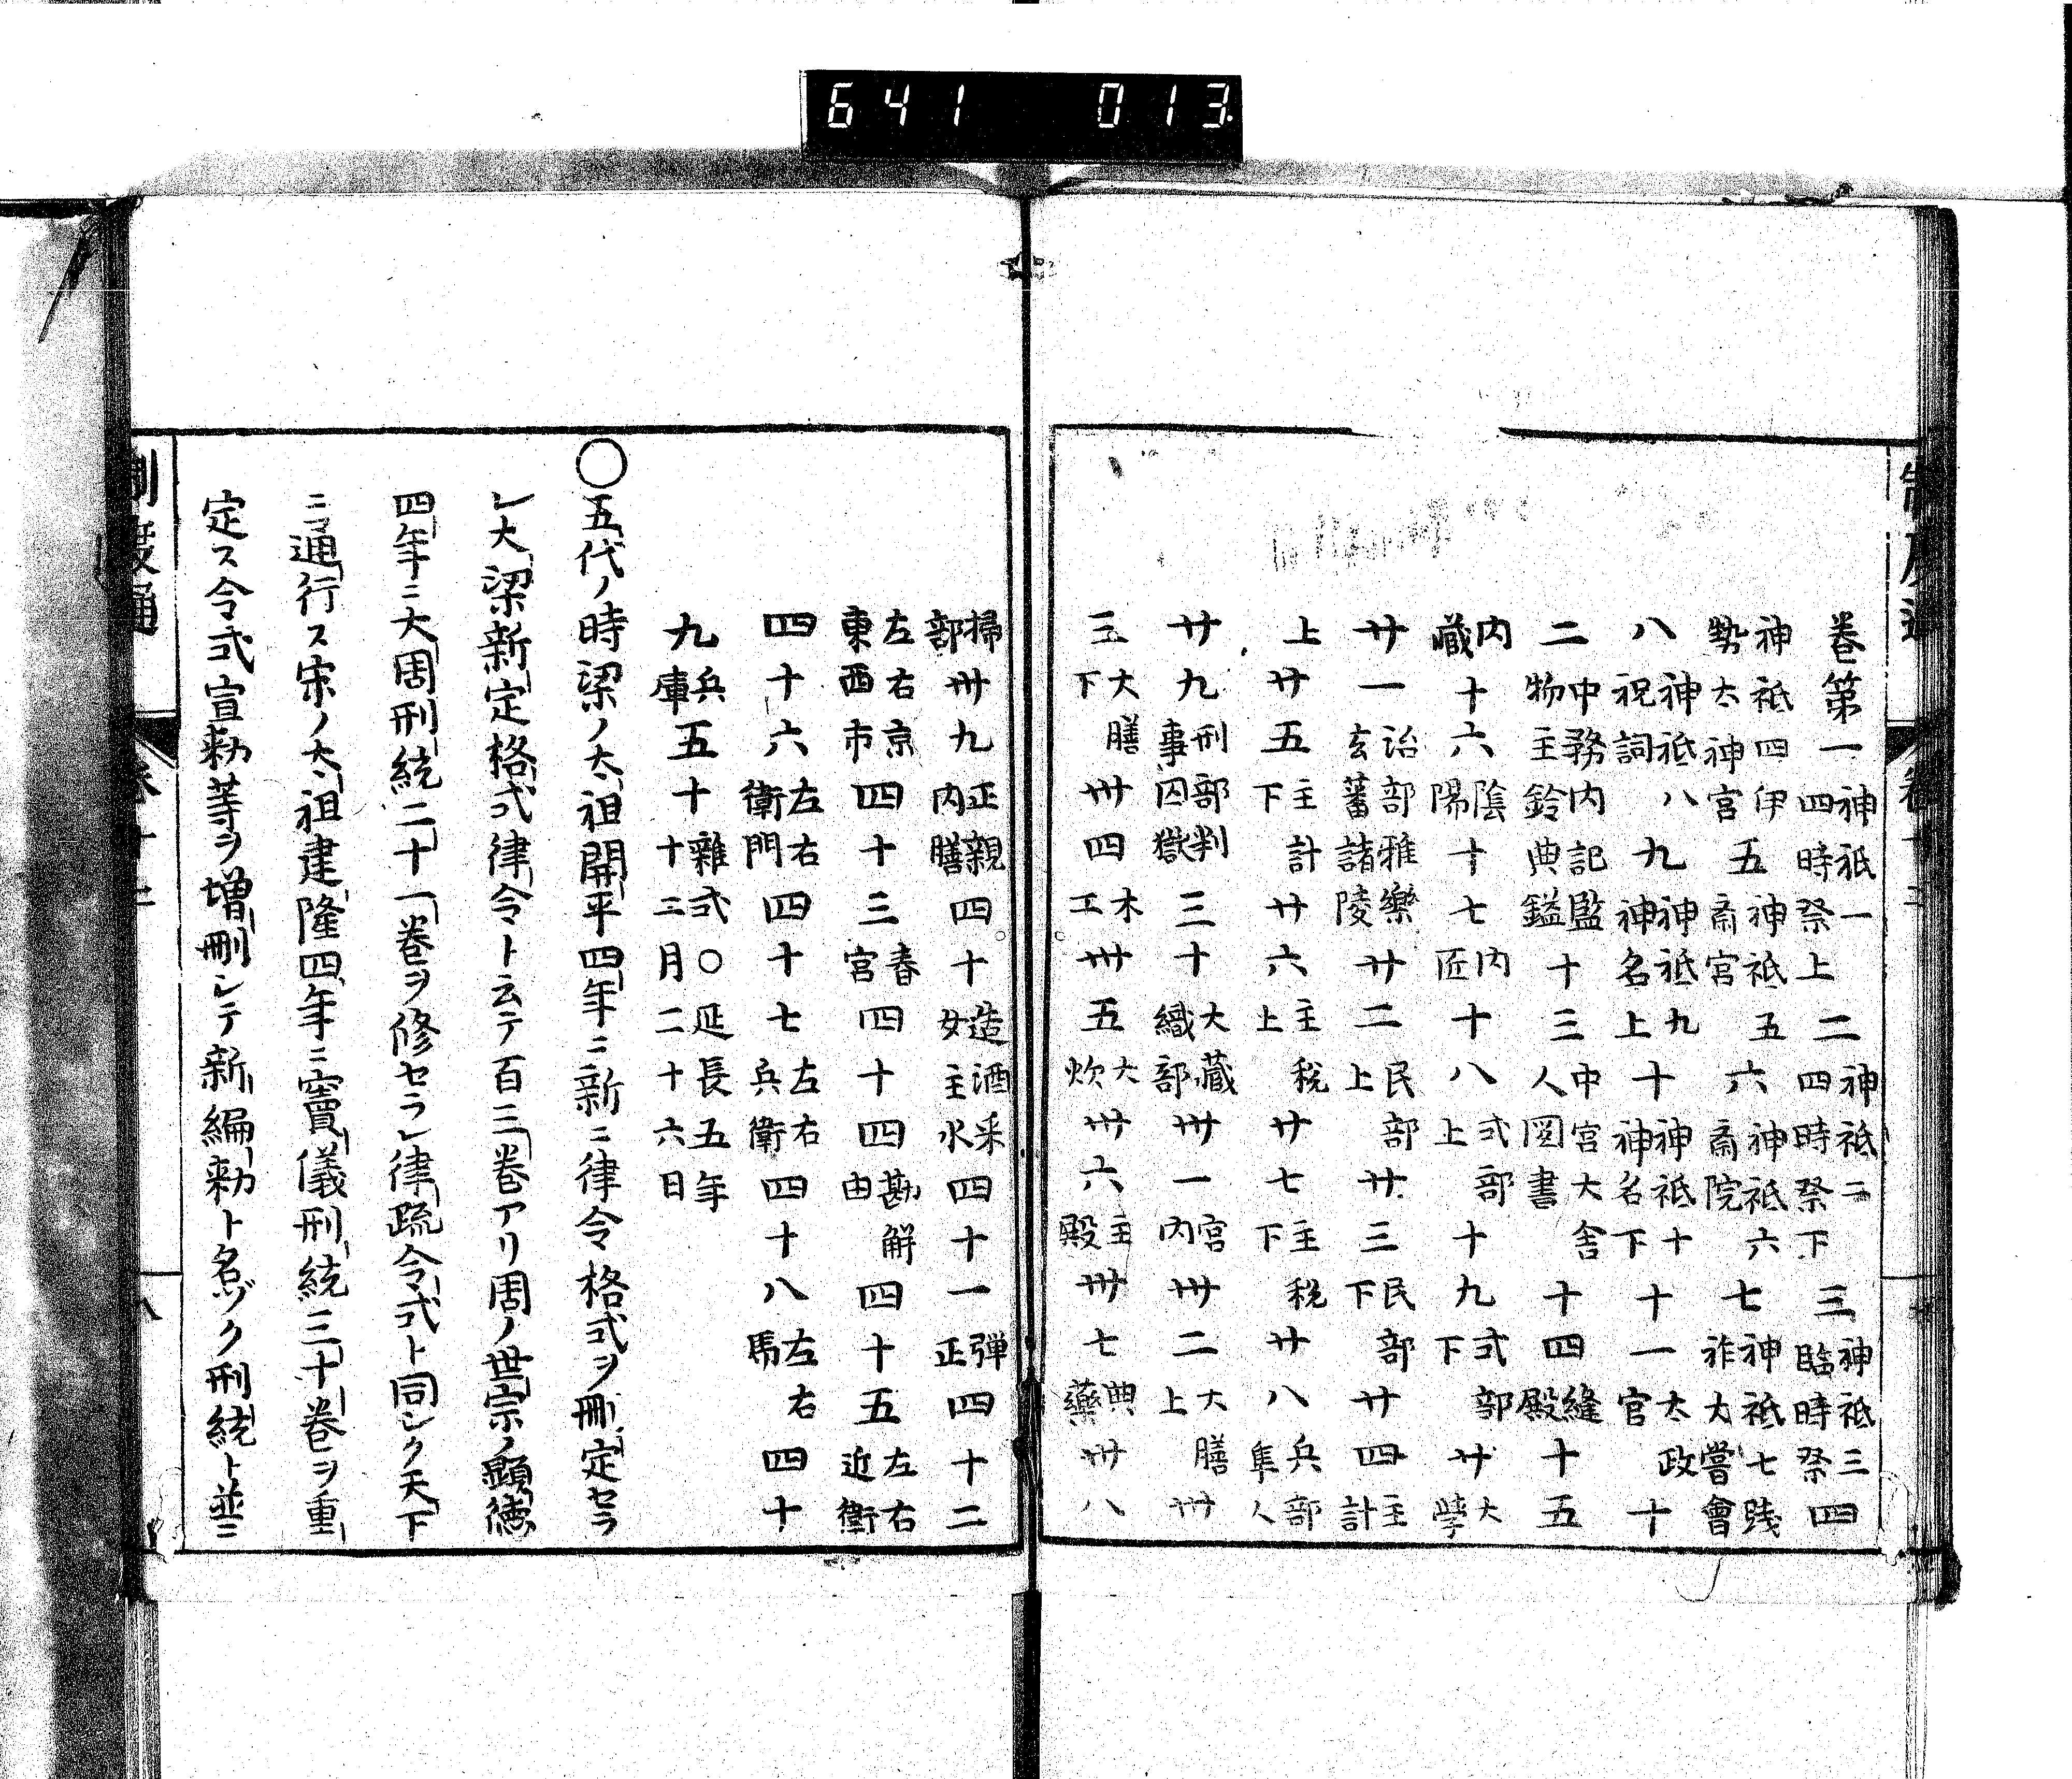 641 013
卷第一神祇一四時祭上二神祇二四時祭下三神祇三臨時祭四
神祇四伊勢太神宮五神祇五斎宮六神祇六斎院七神祇七踐祚大嘗會
八神祇八祝詞九神祇九神名上十神祇十神名下十一太政官十
二中務内記監物主鈴典鎰十三中宮大舍人圖書十四縫殿十五
内藏十六陰陽十七内匠十八式部上十九式部下廿大學
廿一治部雅樂玄蕃諸陵廿二民部上廿三民部下廿四主計
上廿五主計下廿六主税上廿七主税下廿八兵部隼人
廿九刑部判事囚獄三十大藏織部卅一宮内卅二大膳上卅
三大膳下卅四木工卅五大炊卅六主殿卅七典藥卅八
掃部卅九正親内膳四十造酒采女主水四十一弾正四十二
左右京東西市四十三春宮四十四勘解由四十五左右近衛
四十六左右衛門四十七左右兵衛四十八左右馬四十
九兵庫五十雜式〇延長五年十二月二十六日
〇五代ノ時梁ノ太祖開平四年ニ新ニ律令格式ヲ刪定セラ
レ大梁新定格式律令ト云テ百三卷アリ周ノ世宗ノ顯徳
四年ニ大周刑統二十一卷ヲ修セラレ律疏令式ト同シク天下
ニ通行ス宋ノ太祖建隆四年ニ竇儀刑統三十卷ヲ重
定ス令式宣勅等ヲ増刪シテ新編勅ト名ヅク刑統ト並ニ
制度通
八